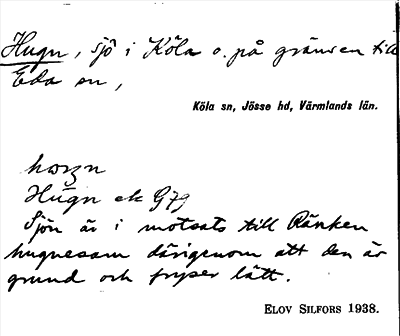 Hugn, sjö i Köla o. på gränsen till
Eda sn,
Köla sn, Jösse hd, Värmlands län.
Hugn ek G79
Sjön är i motsats till Ränken
hugnesam därigenom att den är
grund och fryser lätt.
ELOV SILFORS 1938.